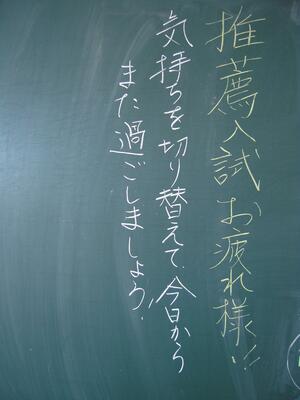 推薦入試お疲れ様!!
気持ちを切り替えて、今日から
また過ごしましょう!